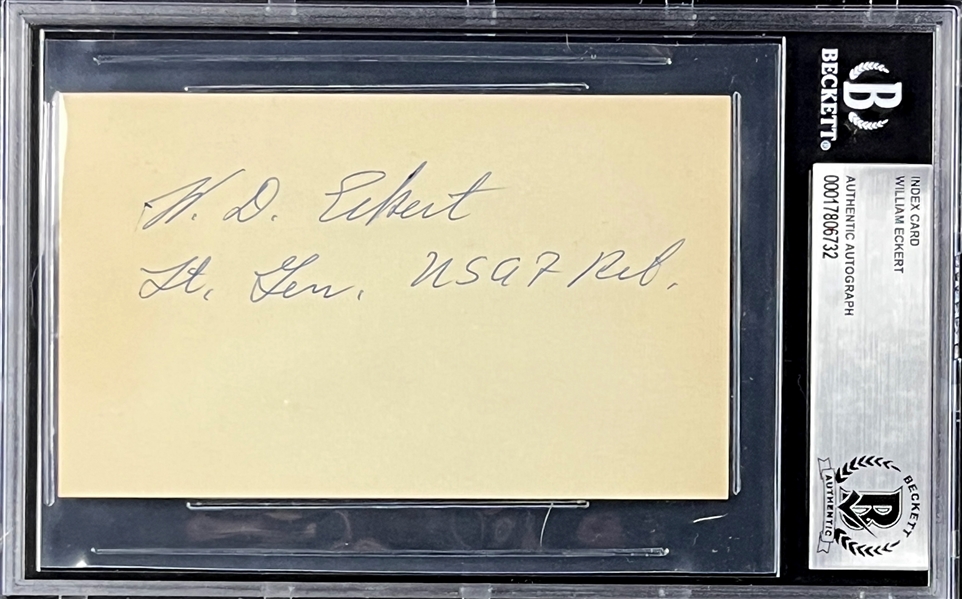 W. D. Eckert
Lt. Gen. USAF Ret.
BECKETT
INDEX CARD
WILLIAM ECKERT
AUTHENTIC AUTOGRAPH
00017806732
BECKETT
AUTHENTIC